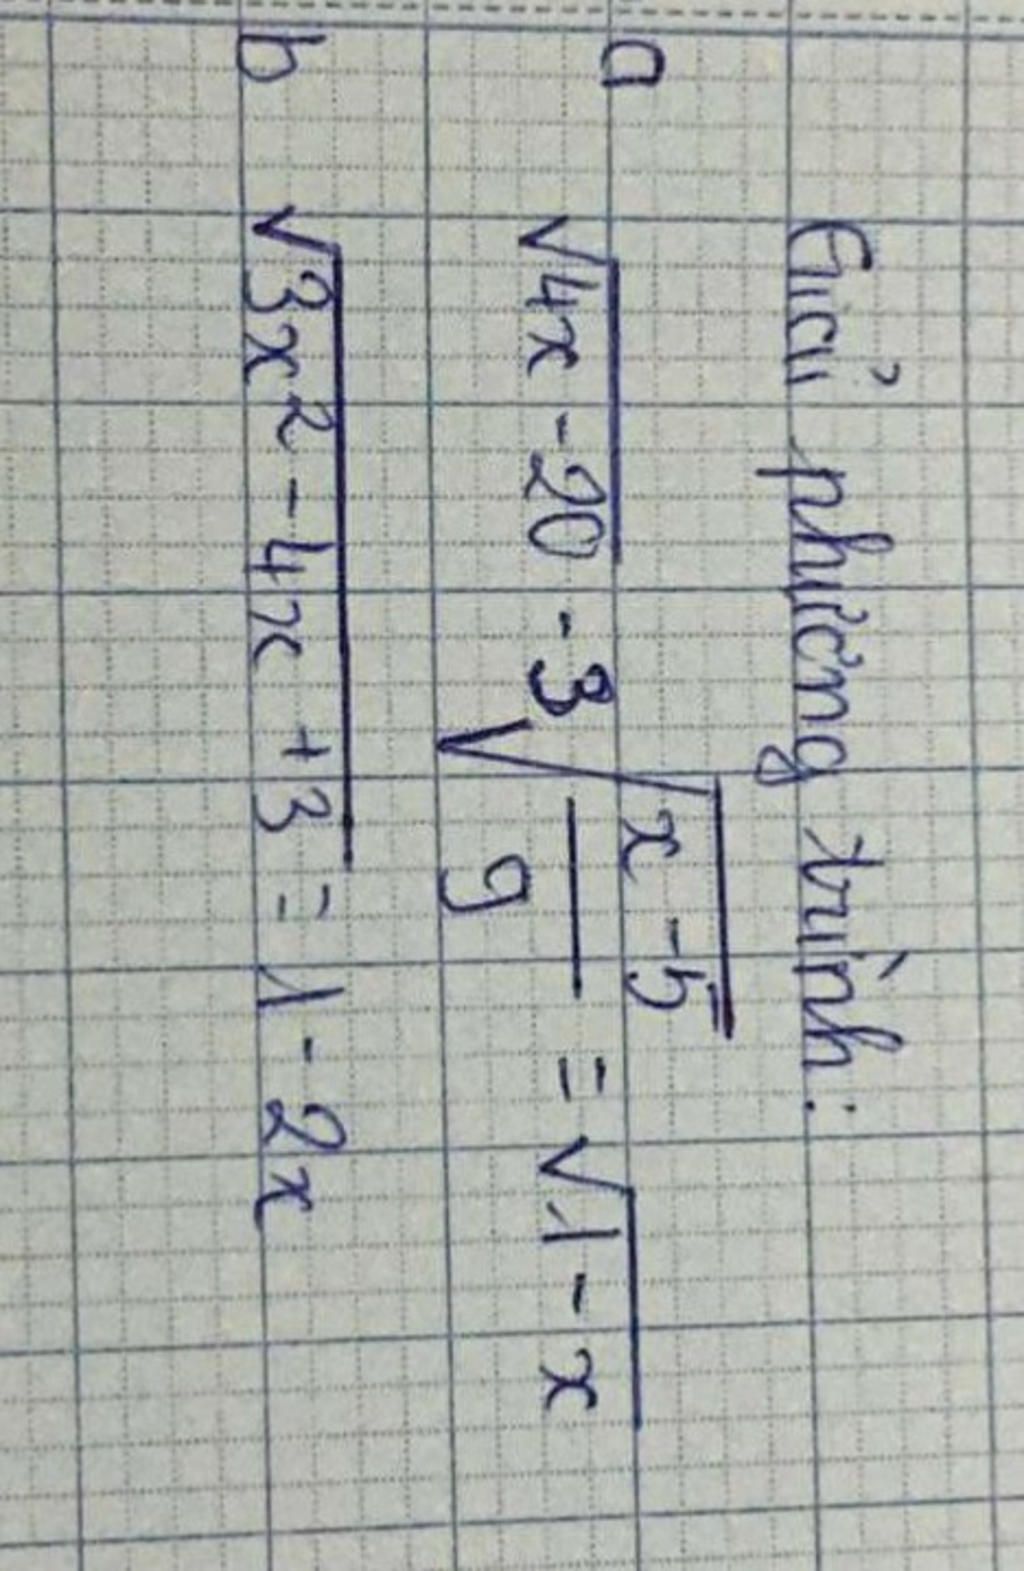 Giải phương trình:
a √(4x - 20) - 3√((x - 5)/9) = √(1 - x)
b √(3x² - 4x + 3) = 1 - 2x